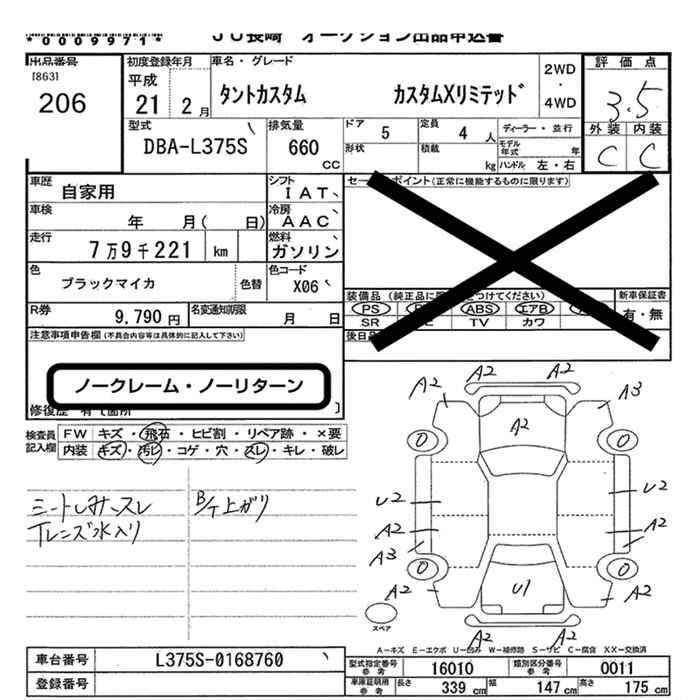 *0009971*
JU長崎 オークション出品申込書
出品番号
[863]
206
初度登録年月
平成
21 2月
車名・グレード
タントカスタム カスタムXリミテッド
2WD
・
4WD
評価点
3.5
外装 内装
C C
型式
DBA-L375S
排気量
660
CC
ドア 5
定員 4 人
ディーラー・並行
形状
積載 kg
モデル年式 年
ハンドル 左・右
車歴
自家用
シフト
IAT
車検
年 月( 日)
冷房
AAC
走行
7万9千221 km
燃料
ガソリン
色
ブラックマイカ
色替
色コード
X06
R券
9,790円
名変通知期限
月 日
セールスポイント(正常に機能するものに限ります)
装備品
PS ABS エアB
SR TV カワ
新車保証書
有・無
後日品
注意事項申告欄(不具合内容等は具体的に記入して下さい)
ノークレーム・ノーリターン
修復歴 有(箇所 )
検査員記入欄
FW キズ・飛石・ヒビ割・リペア跡・×要
内装 キズ・汚レ・コゲ・穴・スレ・キレ・破レ
B/T上がり
Tレンズ水入り
A2 A2
A2 A3
A2
0 0
U2 U2
A2 A2
A3
0 0
A2 U1 A2
A2 A2
スペア
A-キズ E-エクボ U-凹み W-補修跡 S-サビ C-腐食 XX-交換済
車台番号 L375S-0168760
登録番号
型式指定番号 参考 16010
類別区分番号 参考 0011
車庫証明用 参考 長さ 339 cm 幅 147 cm 高さ 175 cm